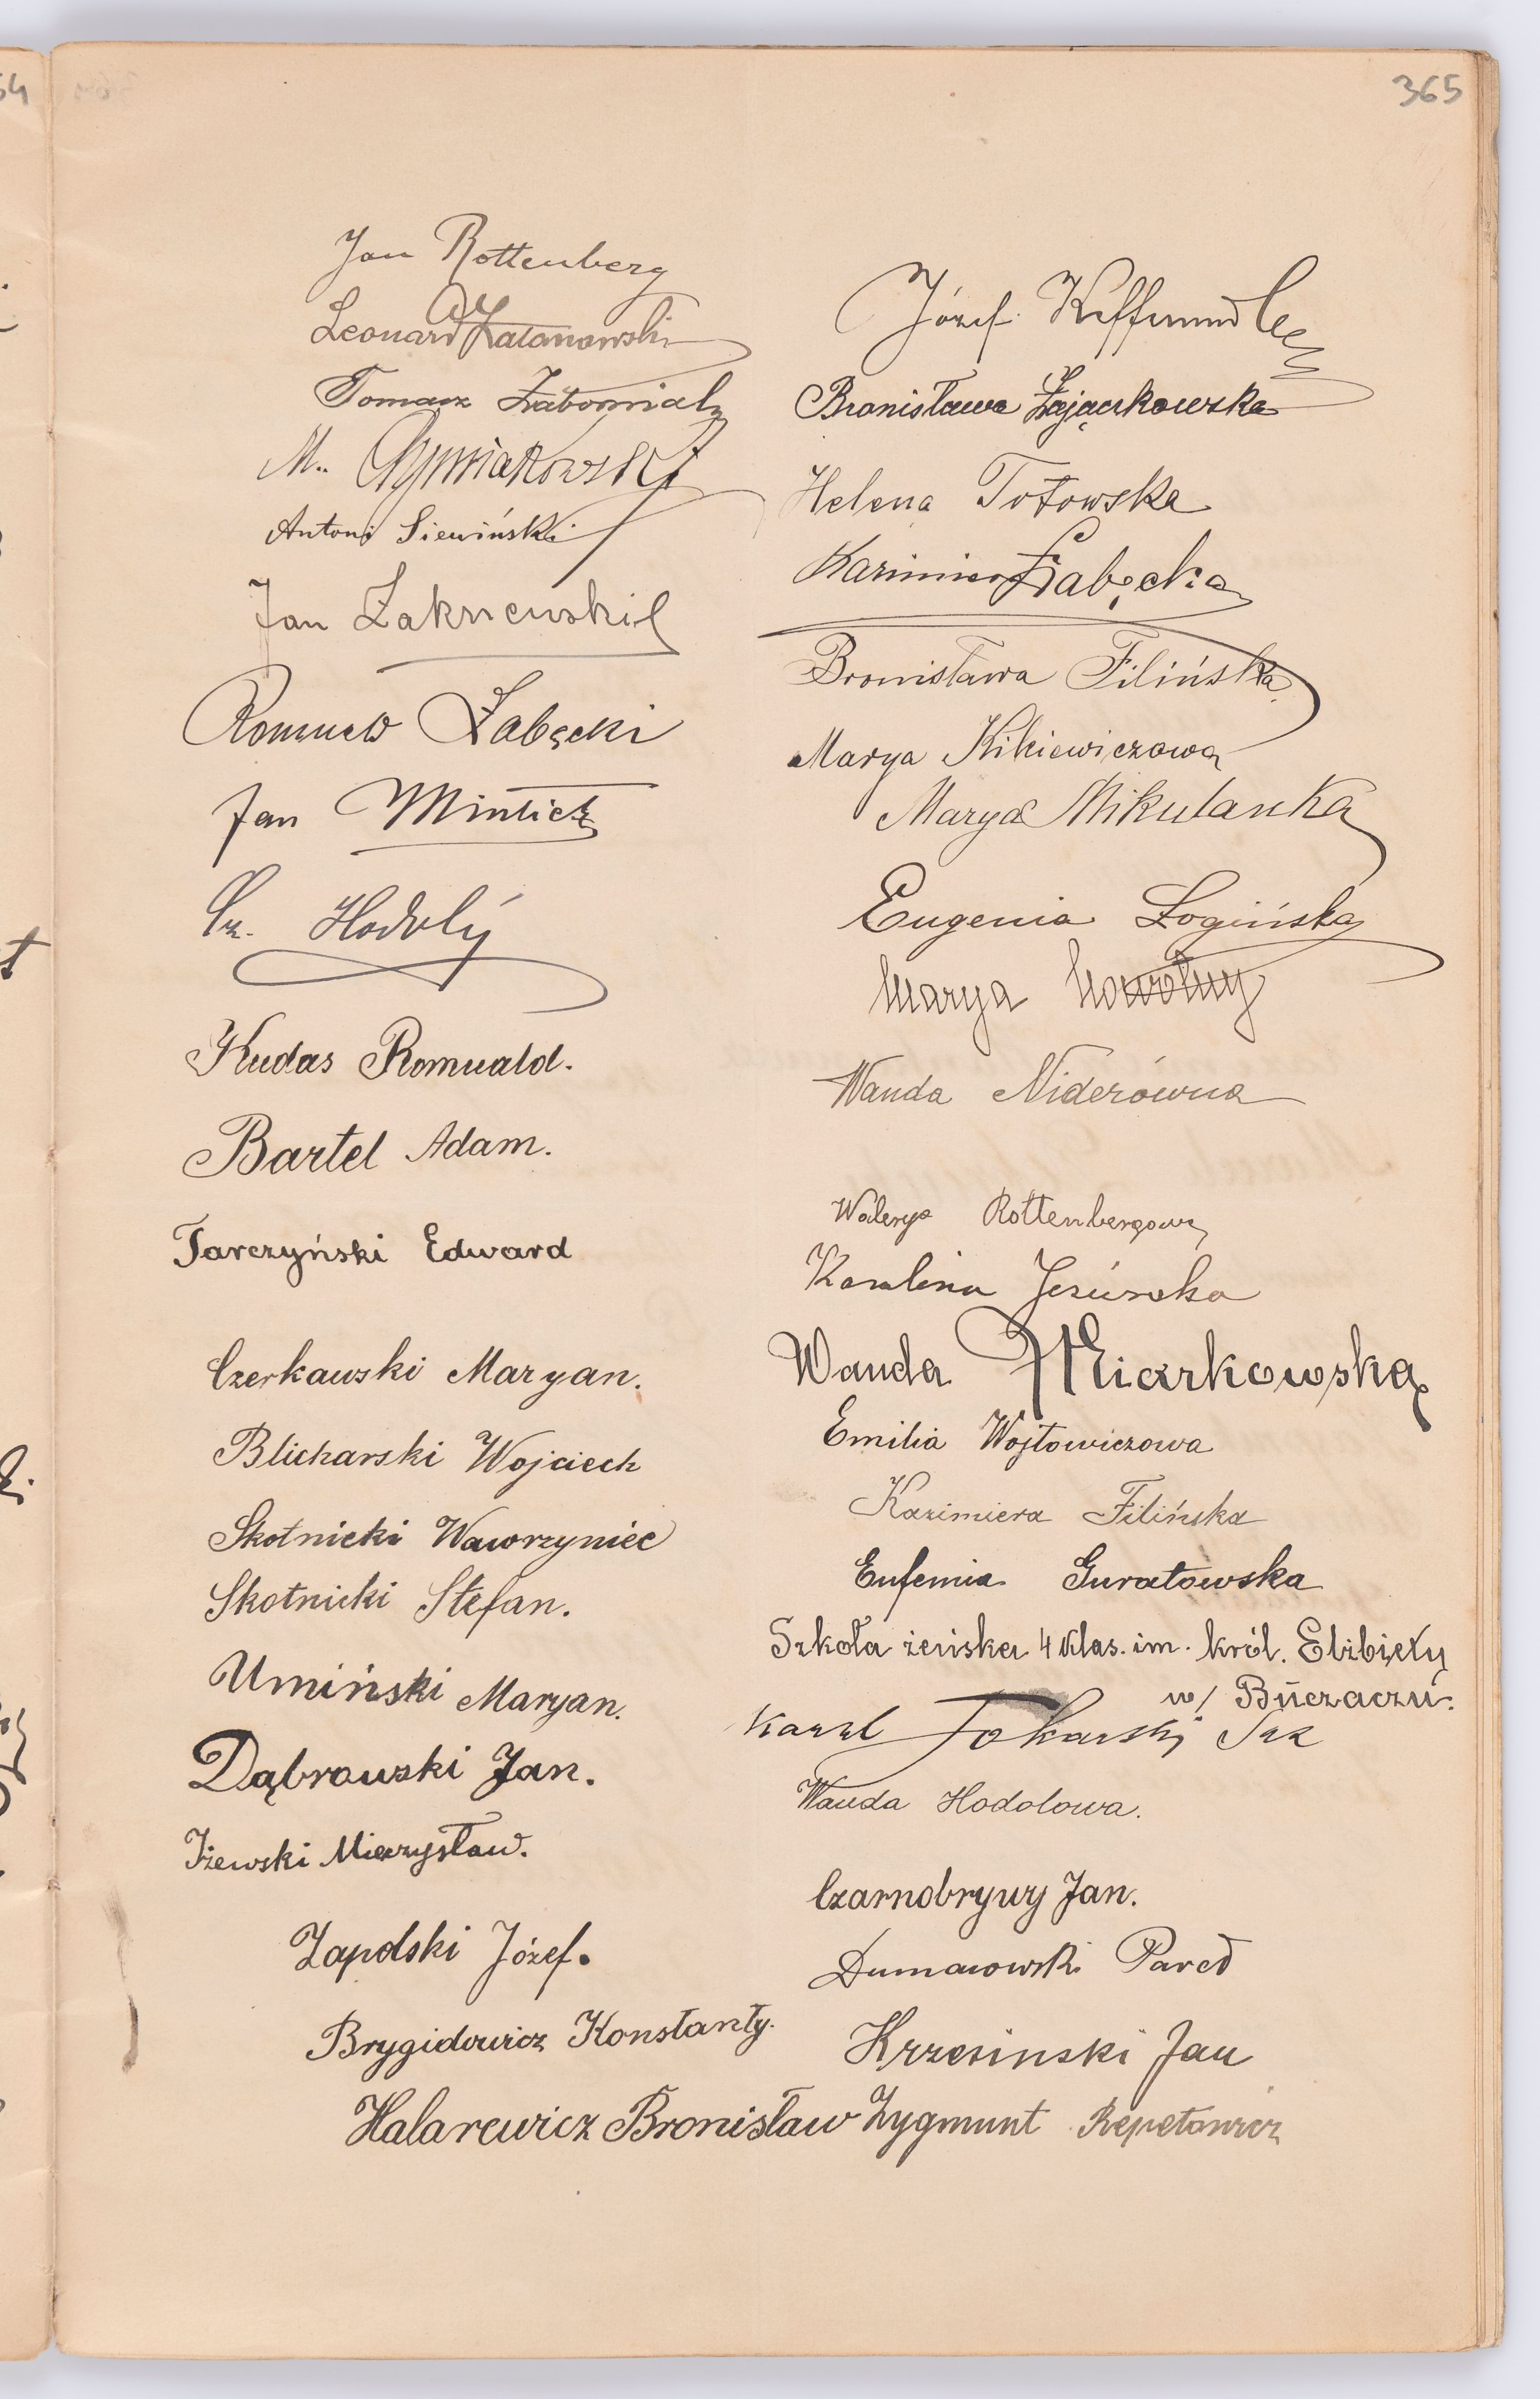 365
Jan Rottenberg
Leonard
Tomasz
M.
Antoni Siewiński
Jan Zakrzewski
Romuald Łabęcki
Jan
Cz. Hodolý
Kudas Romuald.
Bartel Adam.
Tarczyński Edward
Czerkawski Maryan.
Blicharski Wojciech
Skotnicki Wawrzyniec
Skotnicki Stefan.
Umiński Maryan.
Dąbrowski Jan.
Iżewski Mieczysław.
Zapolski Józef.
Brygidowicz Konstanty.
Halarewicz Bronisław
Józef
Bronisława Zajączkowska
Helena Totowska
Kazimiera Łabęcka
Bronisława Filińska
Marya Kikiewiczowa
Marya Mikulanka
Eugenia Łogińska
Marya Nowotny
Wanda Niderówna
Walerya Rottenbergowa
Karolina
Wanda Miarkowska
Emilia Wojtowiczowa
Kazimiera Filińska
Eufemia Guratowska
Szkoła żeńska 4 klas. im. król. Elżbiety
w/ Buczaczu.
Karol Tokarski
Wanda Hodolowa.
Czarnobrywy Jan.
Paweł
Krzesinski Jan
Zygmunt Repetowicz